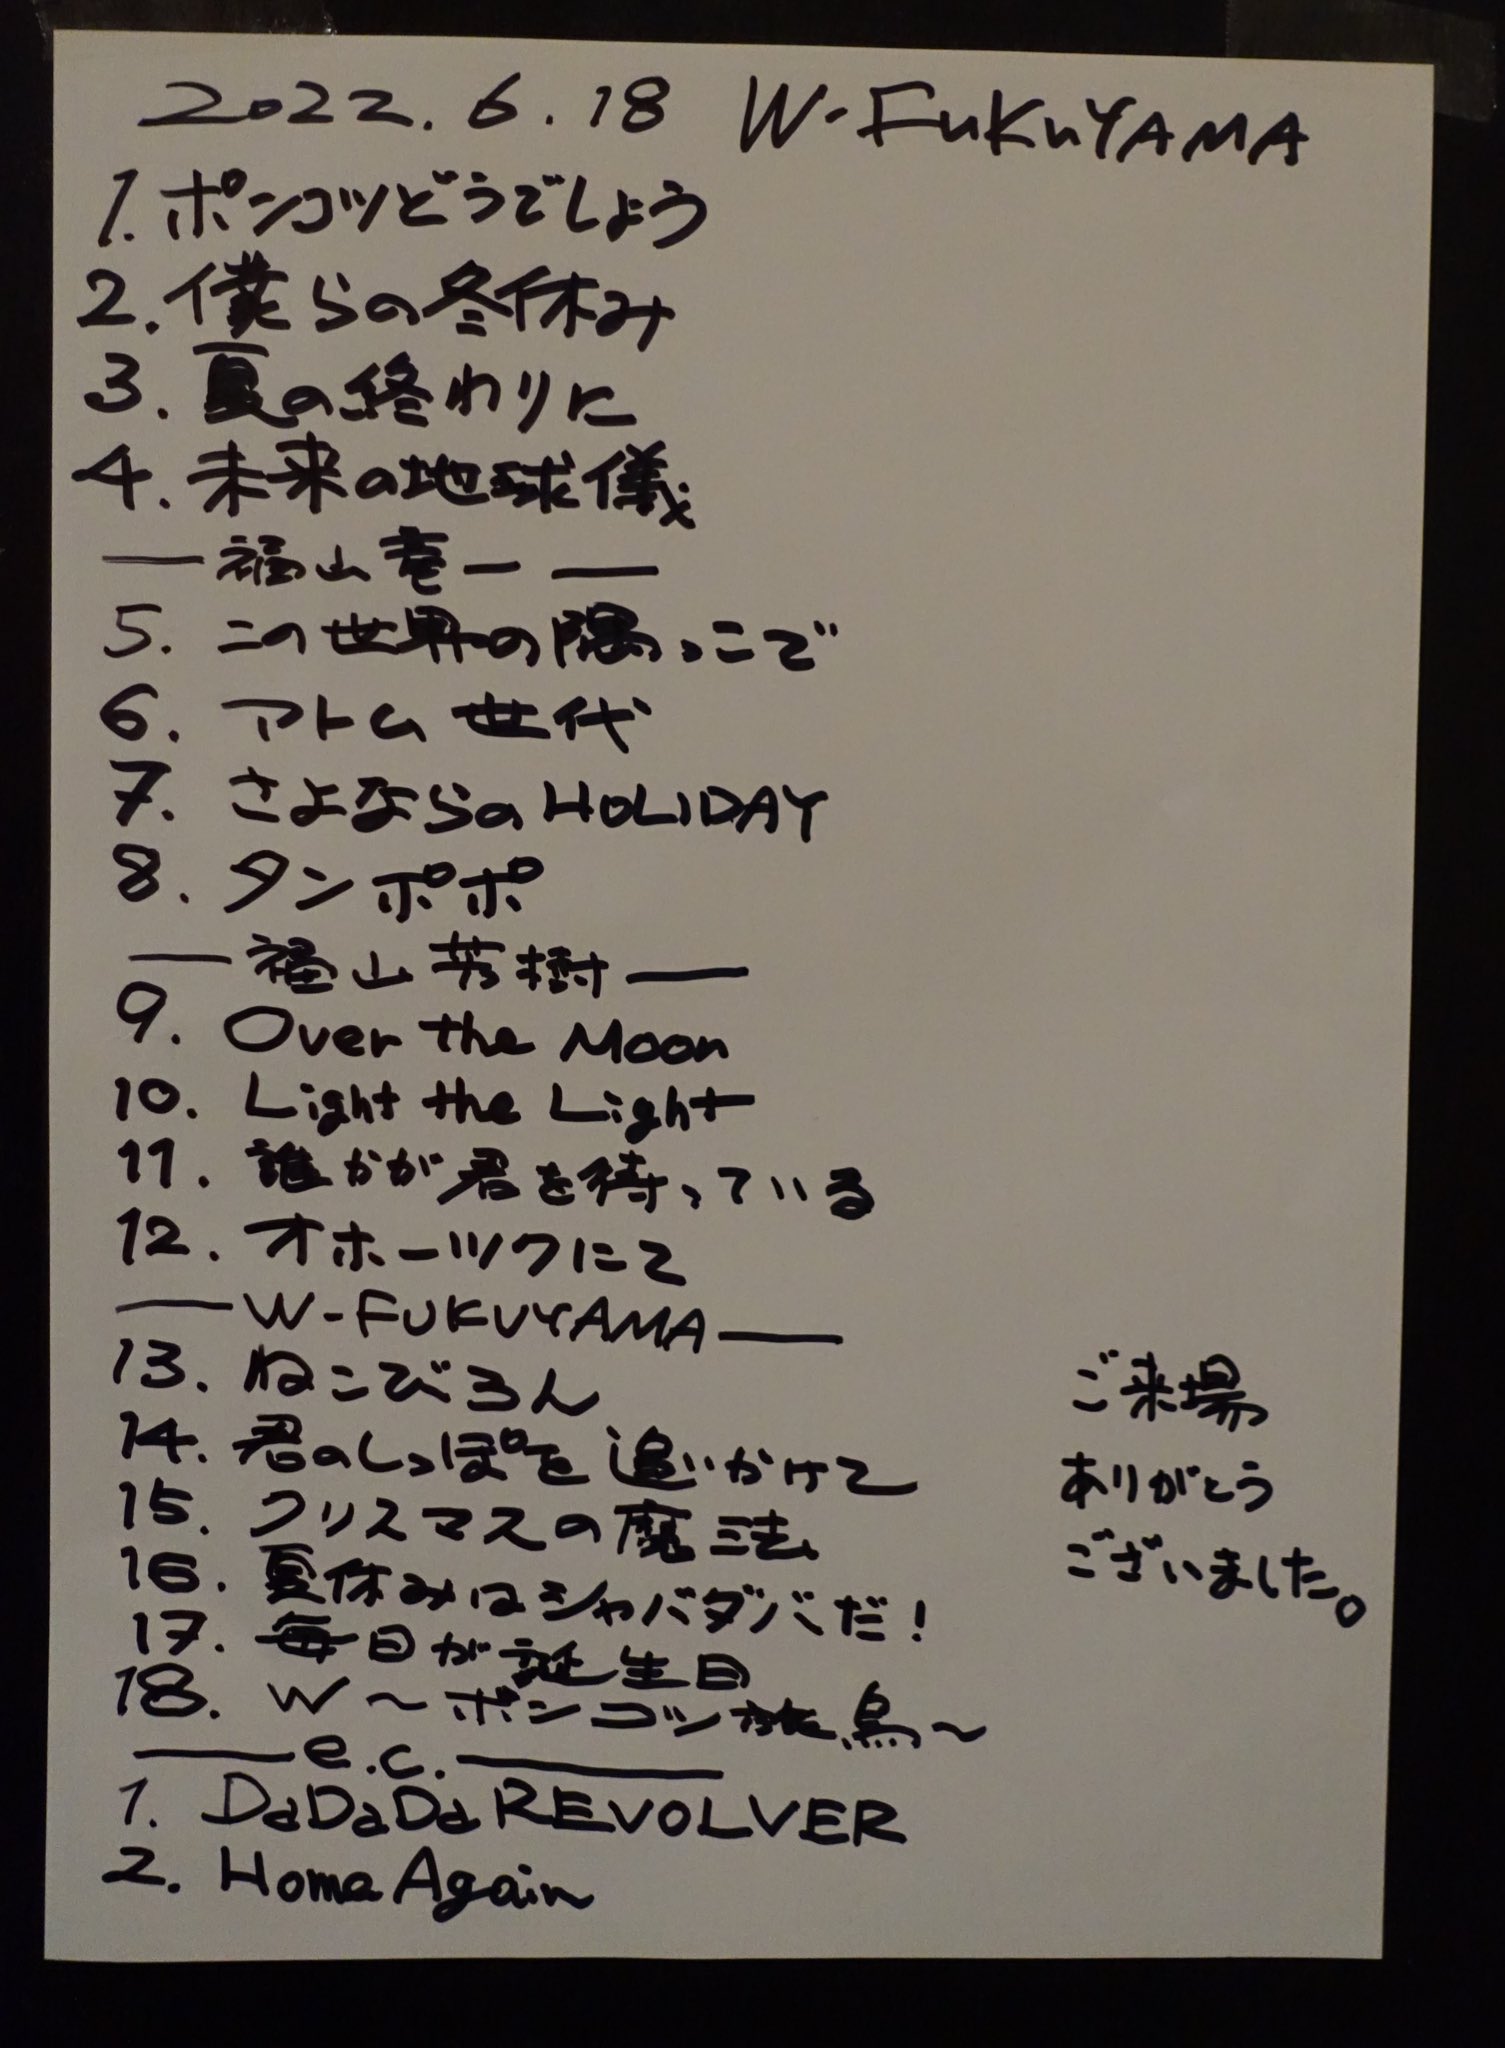 2022.6.18 W-FuKuYAMA
1. ポンコツどうでしょう
2. 僕らの冬休み
3. 夏の終わりに
4. 未来の地球儀
—福山竜一—
5. この世界の隅っこで
6. アトム世代
7. さよならのHOLIDAY
8. タンポポ
—福山芳樹—
9. Over the Moon
10. Light the Light
11. 誰かが君を待っている
12. オホーツクにて
—W-FUKUYAMA—
13. ねこびろん
14. 君のしっぽを追いかけて
15. クリスマスの魔法
16. 夏休みはシャバダバだ!
17. 毎日が誕生日
18. W〜ポンコツ旅鳥〜
—e.c.—
1. DaDaDa REVOLVER
2. Home Again
ご来場
ありがとう
ございました。